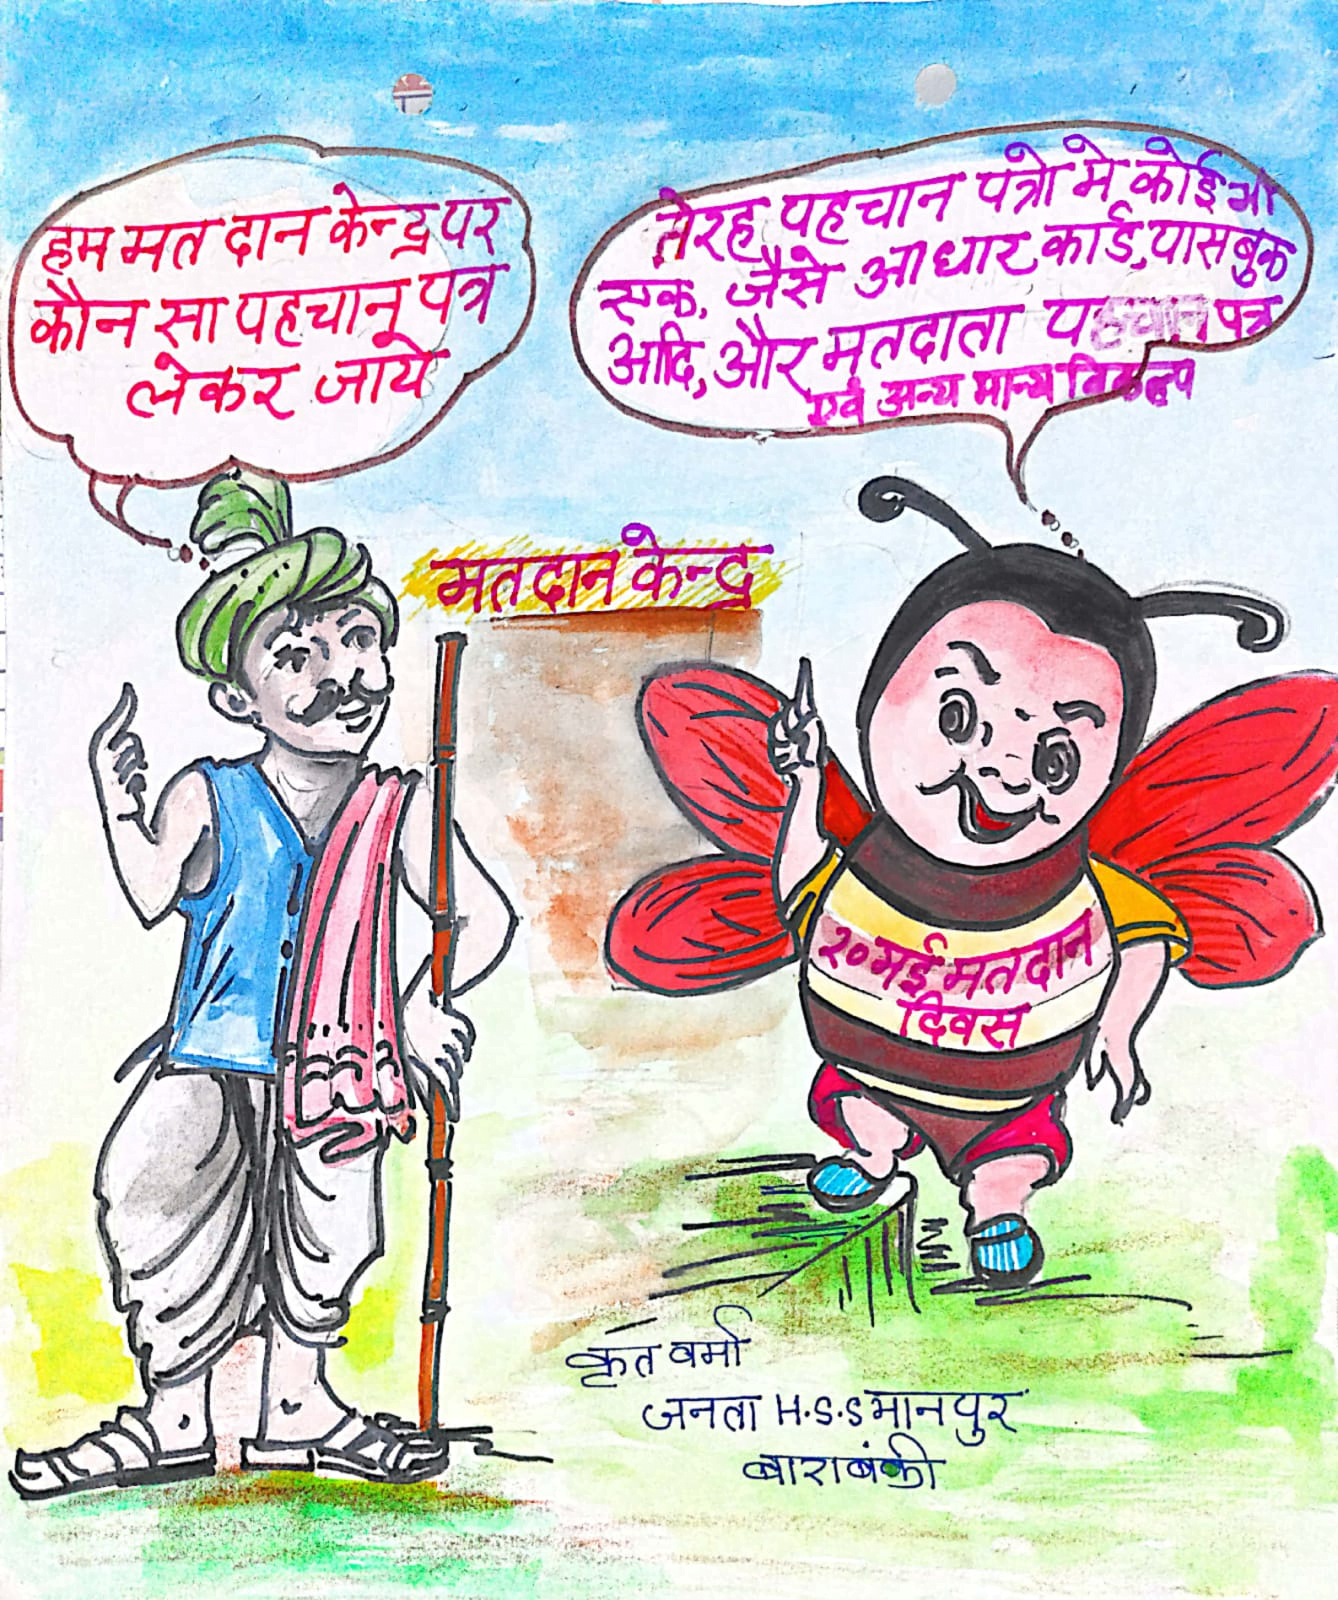 हम मतदान केन्द्र पर
कौन सा पहचान पत्र
लेकर जाये
तेरह पहचान पत्रो मे कोई भी
एक, जैसे आधार कार्ड, पासबुक
आदि, और मतदाता पहचान पत्र
एवं अन्य मान्य विकल्प
मतदान केन्द्र
२० मई मतदान
दिवस
कृत वर्मा
जनता H.S.S मानपुर
बाराबंकी